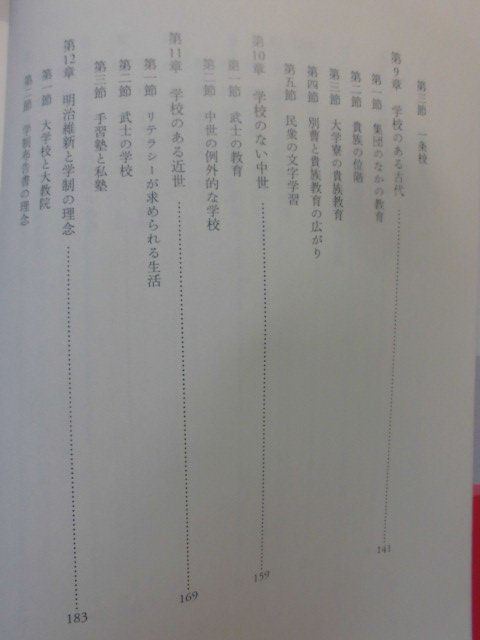 第三節　一条校
第9章　学校のある古代……141
第一節　集団のなかの教育
第二節　貴族の位階
第三節　大学寮の貴族教育
第四節　別曹と貴族教育の広がり
第五節　民衆の文字学習
第10章　学校のない中世……159
第一節　武士の教育
第二節　中世の例外的な学校
第11章　学校のある近世……169
第一節　リテラシーが求められる生活
第二節　武士の学校
第三節　手習塾と私塾
第12章　明治維新と学制の理念……183
第一節　大学校と大教院
第二節　学制布告書の理念